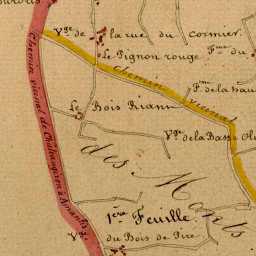 Vge de la rue du cormier
Le Pignon rouge.
Fme du
chemin vicinal
Fme de la hau
Le Bois Riann
Vge de la Basse Ol
Chemin vicinal de Châteaugiron à
des Monts
1ère Feuille.
du Bois de Pire
Vge